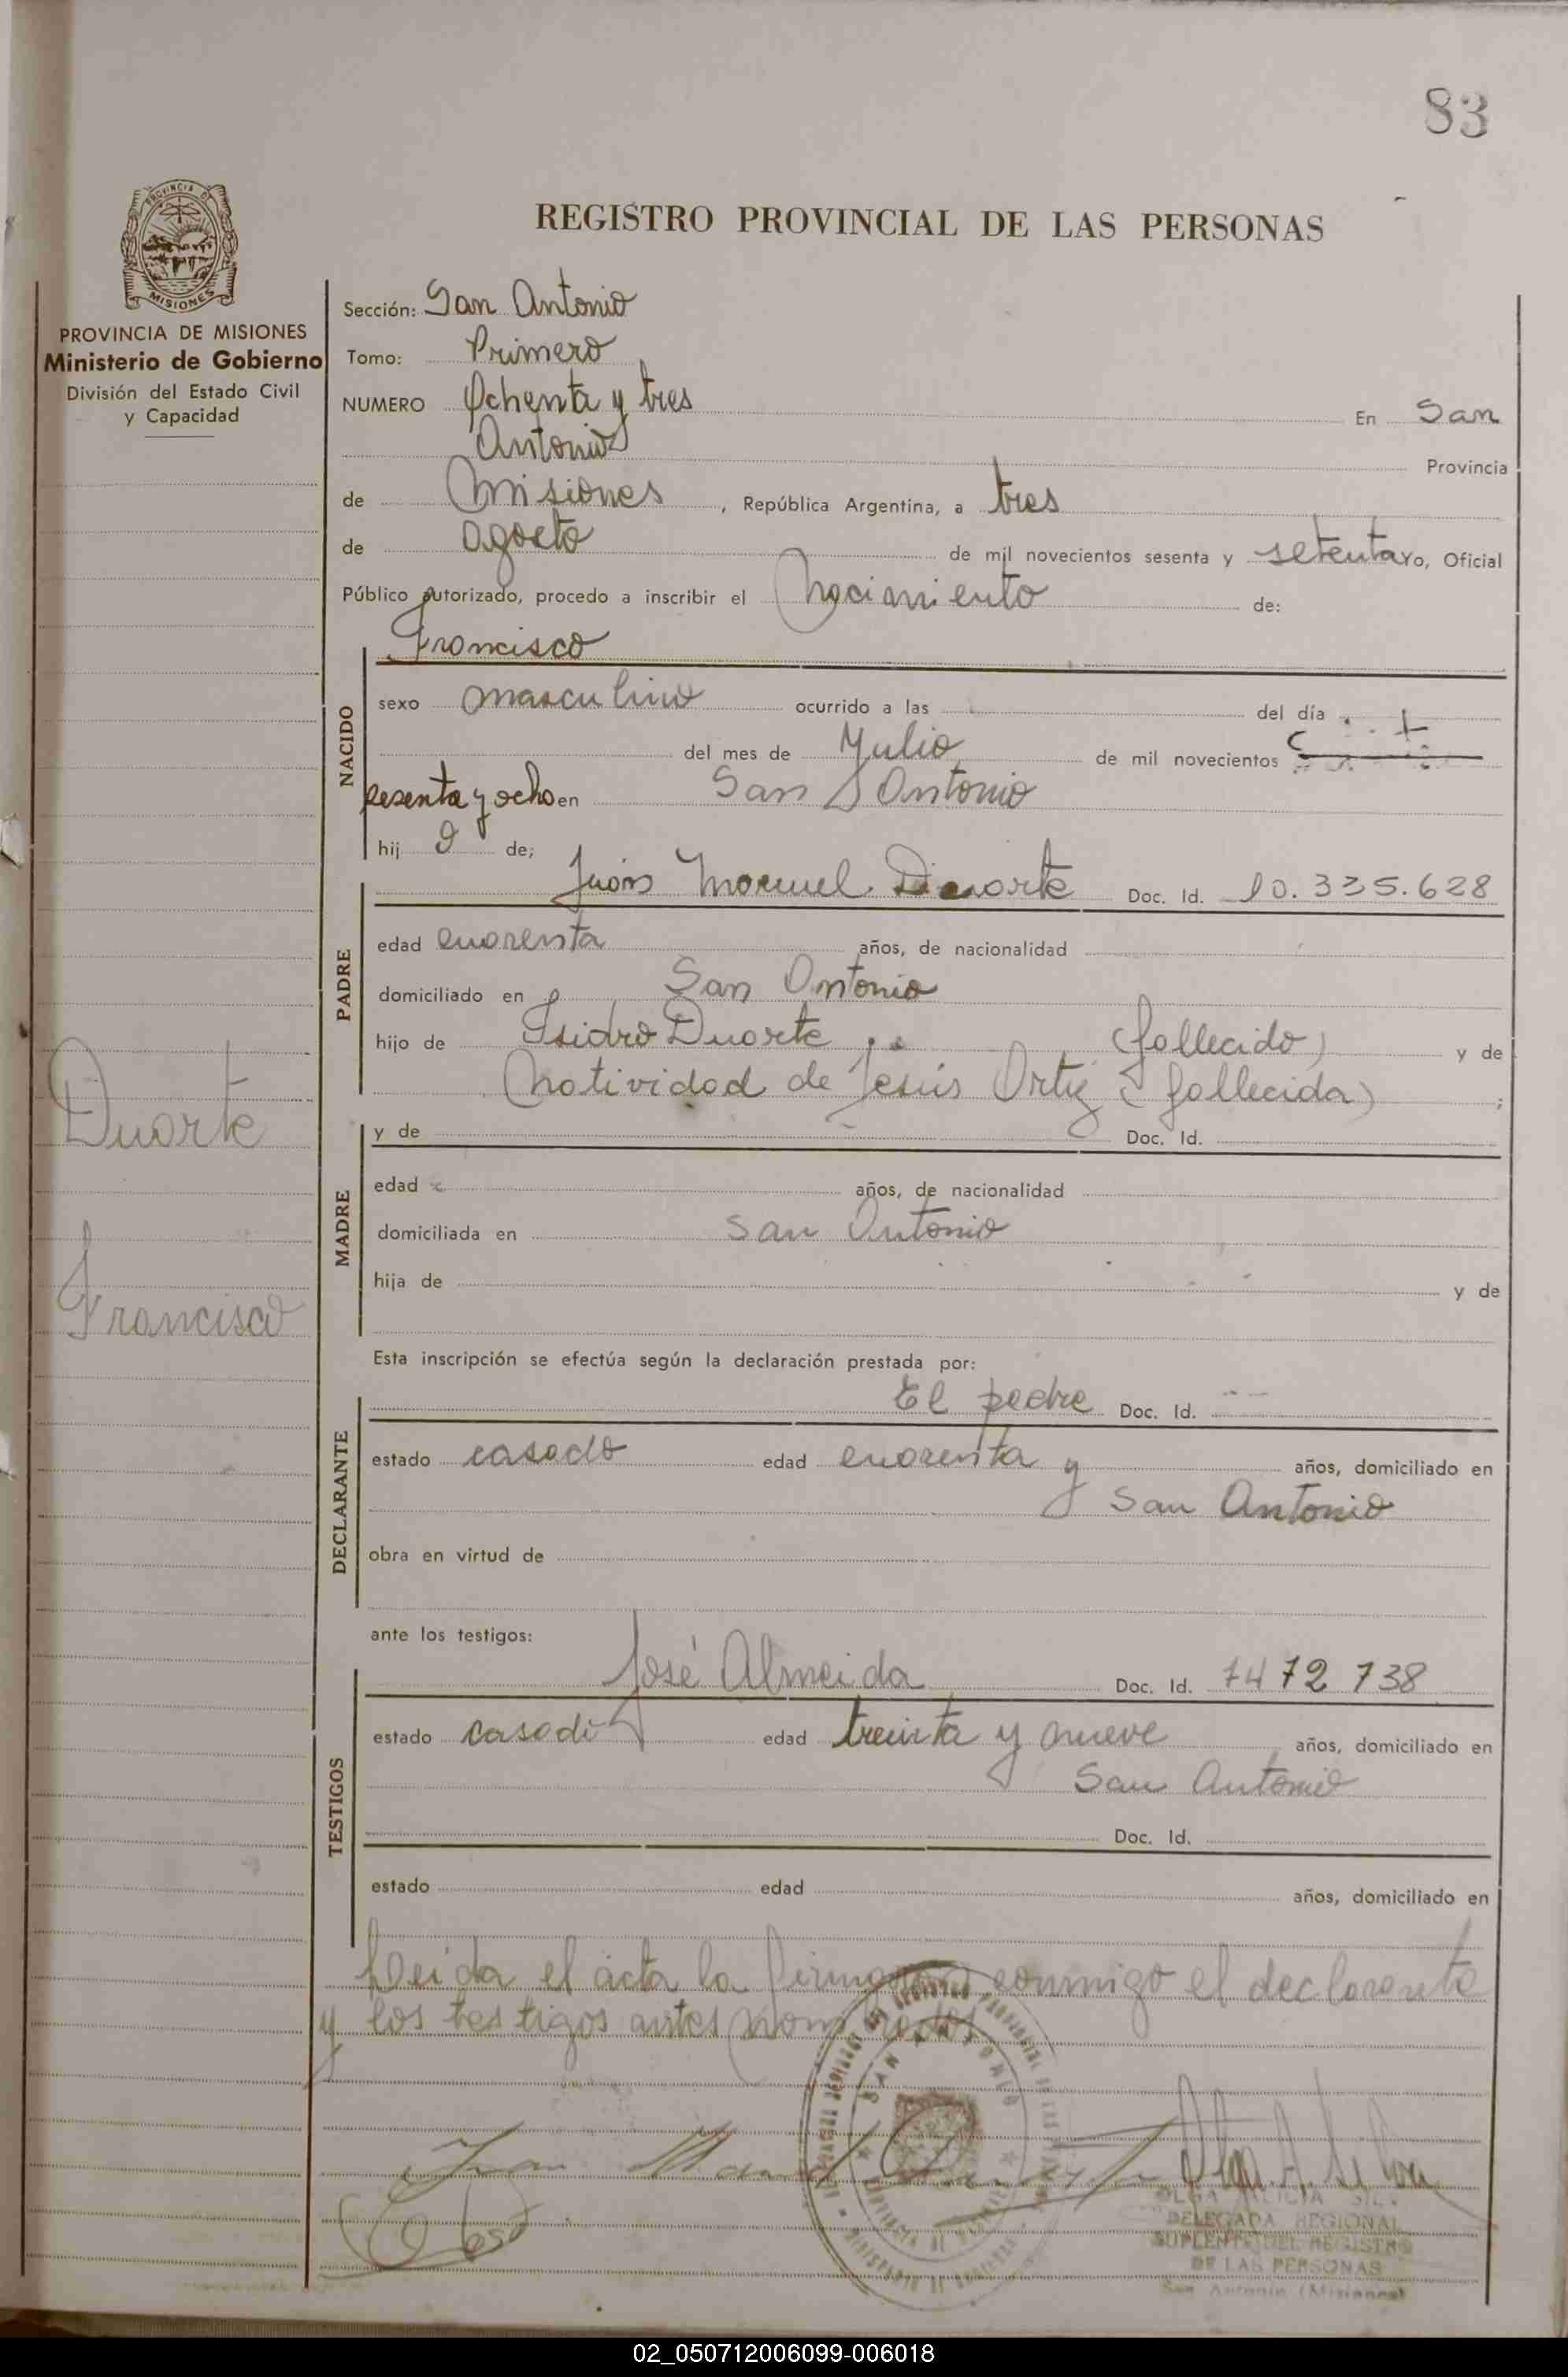 83
PROVINCIA DE
MISIONES
REGISTRO PROVINCIAL DE LAS PERSONAS
PROVINCIA DE MISIONES
Ministerio de Gobierno
División del Estado Civil
y Capacidad
Sección: San Antonio
Tomo: Primero
NUMERO Ochenta y tres En San
Antonio Provincia
de Misiones, República Argentina, a tres
de agosto de mil novecientos sesenta y setenta Yo, Oficial
Público autorizado, procedo a inscribir el Nacimiento de:
Francisco
NACIDO
sexo masculino ocurrido a las del día
del mes de Julio de mil novecientos
sesenta y ocho en San Antonio
hij o de;
Juan Manuel Duarte Doc. Id. 10.335.628
PADRE
edad cuarenta años, de nacionalidad
domiciliado en San Antonio
hijo de Isidro Duarte (fallecido) y de
Natividad de Jesús Ortiz (fallecida) ;
Duarte
Francisco
y de Doc. Id.
MADRE
edad años, de nacionalidad
domiciliada en San Antonio
hija de y de
Esta inscripción se efectúa según la declaración prestada por:
El padre Doc. Id.
DECLARANTE
estado casado edad cuarenta y años, domiciliado en
San Antonio
obra en virtud de
ante los testigos:
José Almeida Doc. Id. 7472738
TESTIGOS
estado casado edad treinta y nueve años, domiciliado en
San Antonio
Doc. Id.
estado edad años, domiciliado en
Leida el acta la firma conmigo el declarante
y los testigos antes nombrados
Juan Manuel Duarte
Olga A. Silva
OLGA ALICIA SILVA
DELEGADA REGIONAL
SUPLENTE DEL REGISTRO
DE LAS PERSONAS
San Antonio (Misiones)
02_050712006099-006018